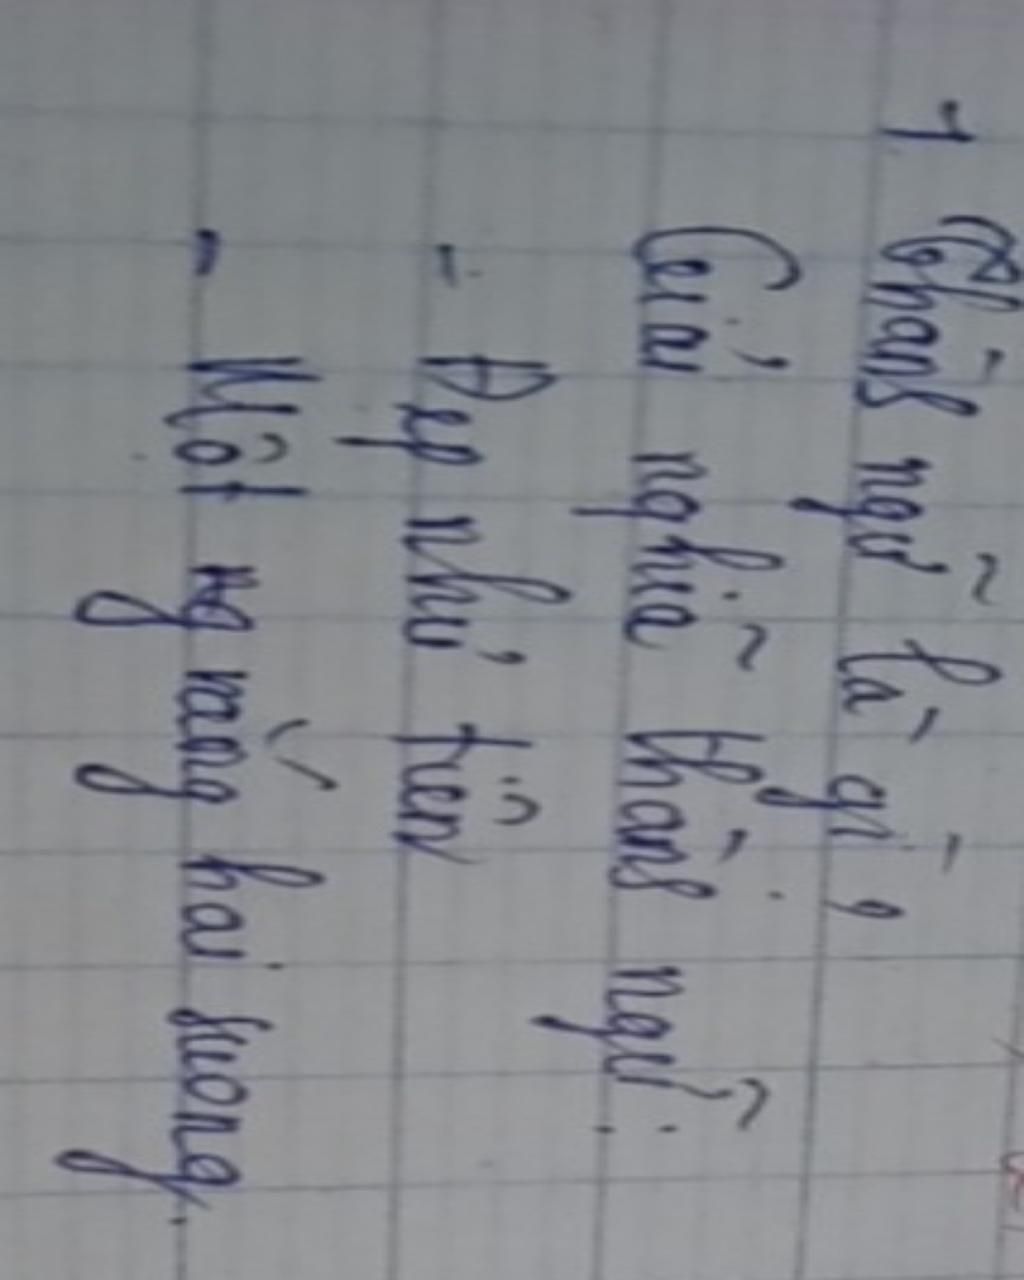 1. Thành ngữ là gì,
Giải nghĩa thành ngữ:
- Đẹp như tiên
- Một nắng hai sương.